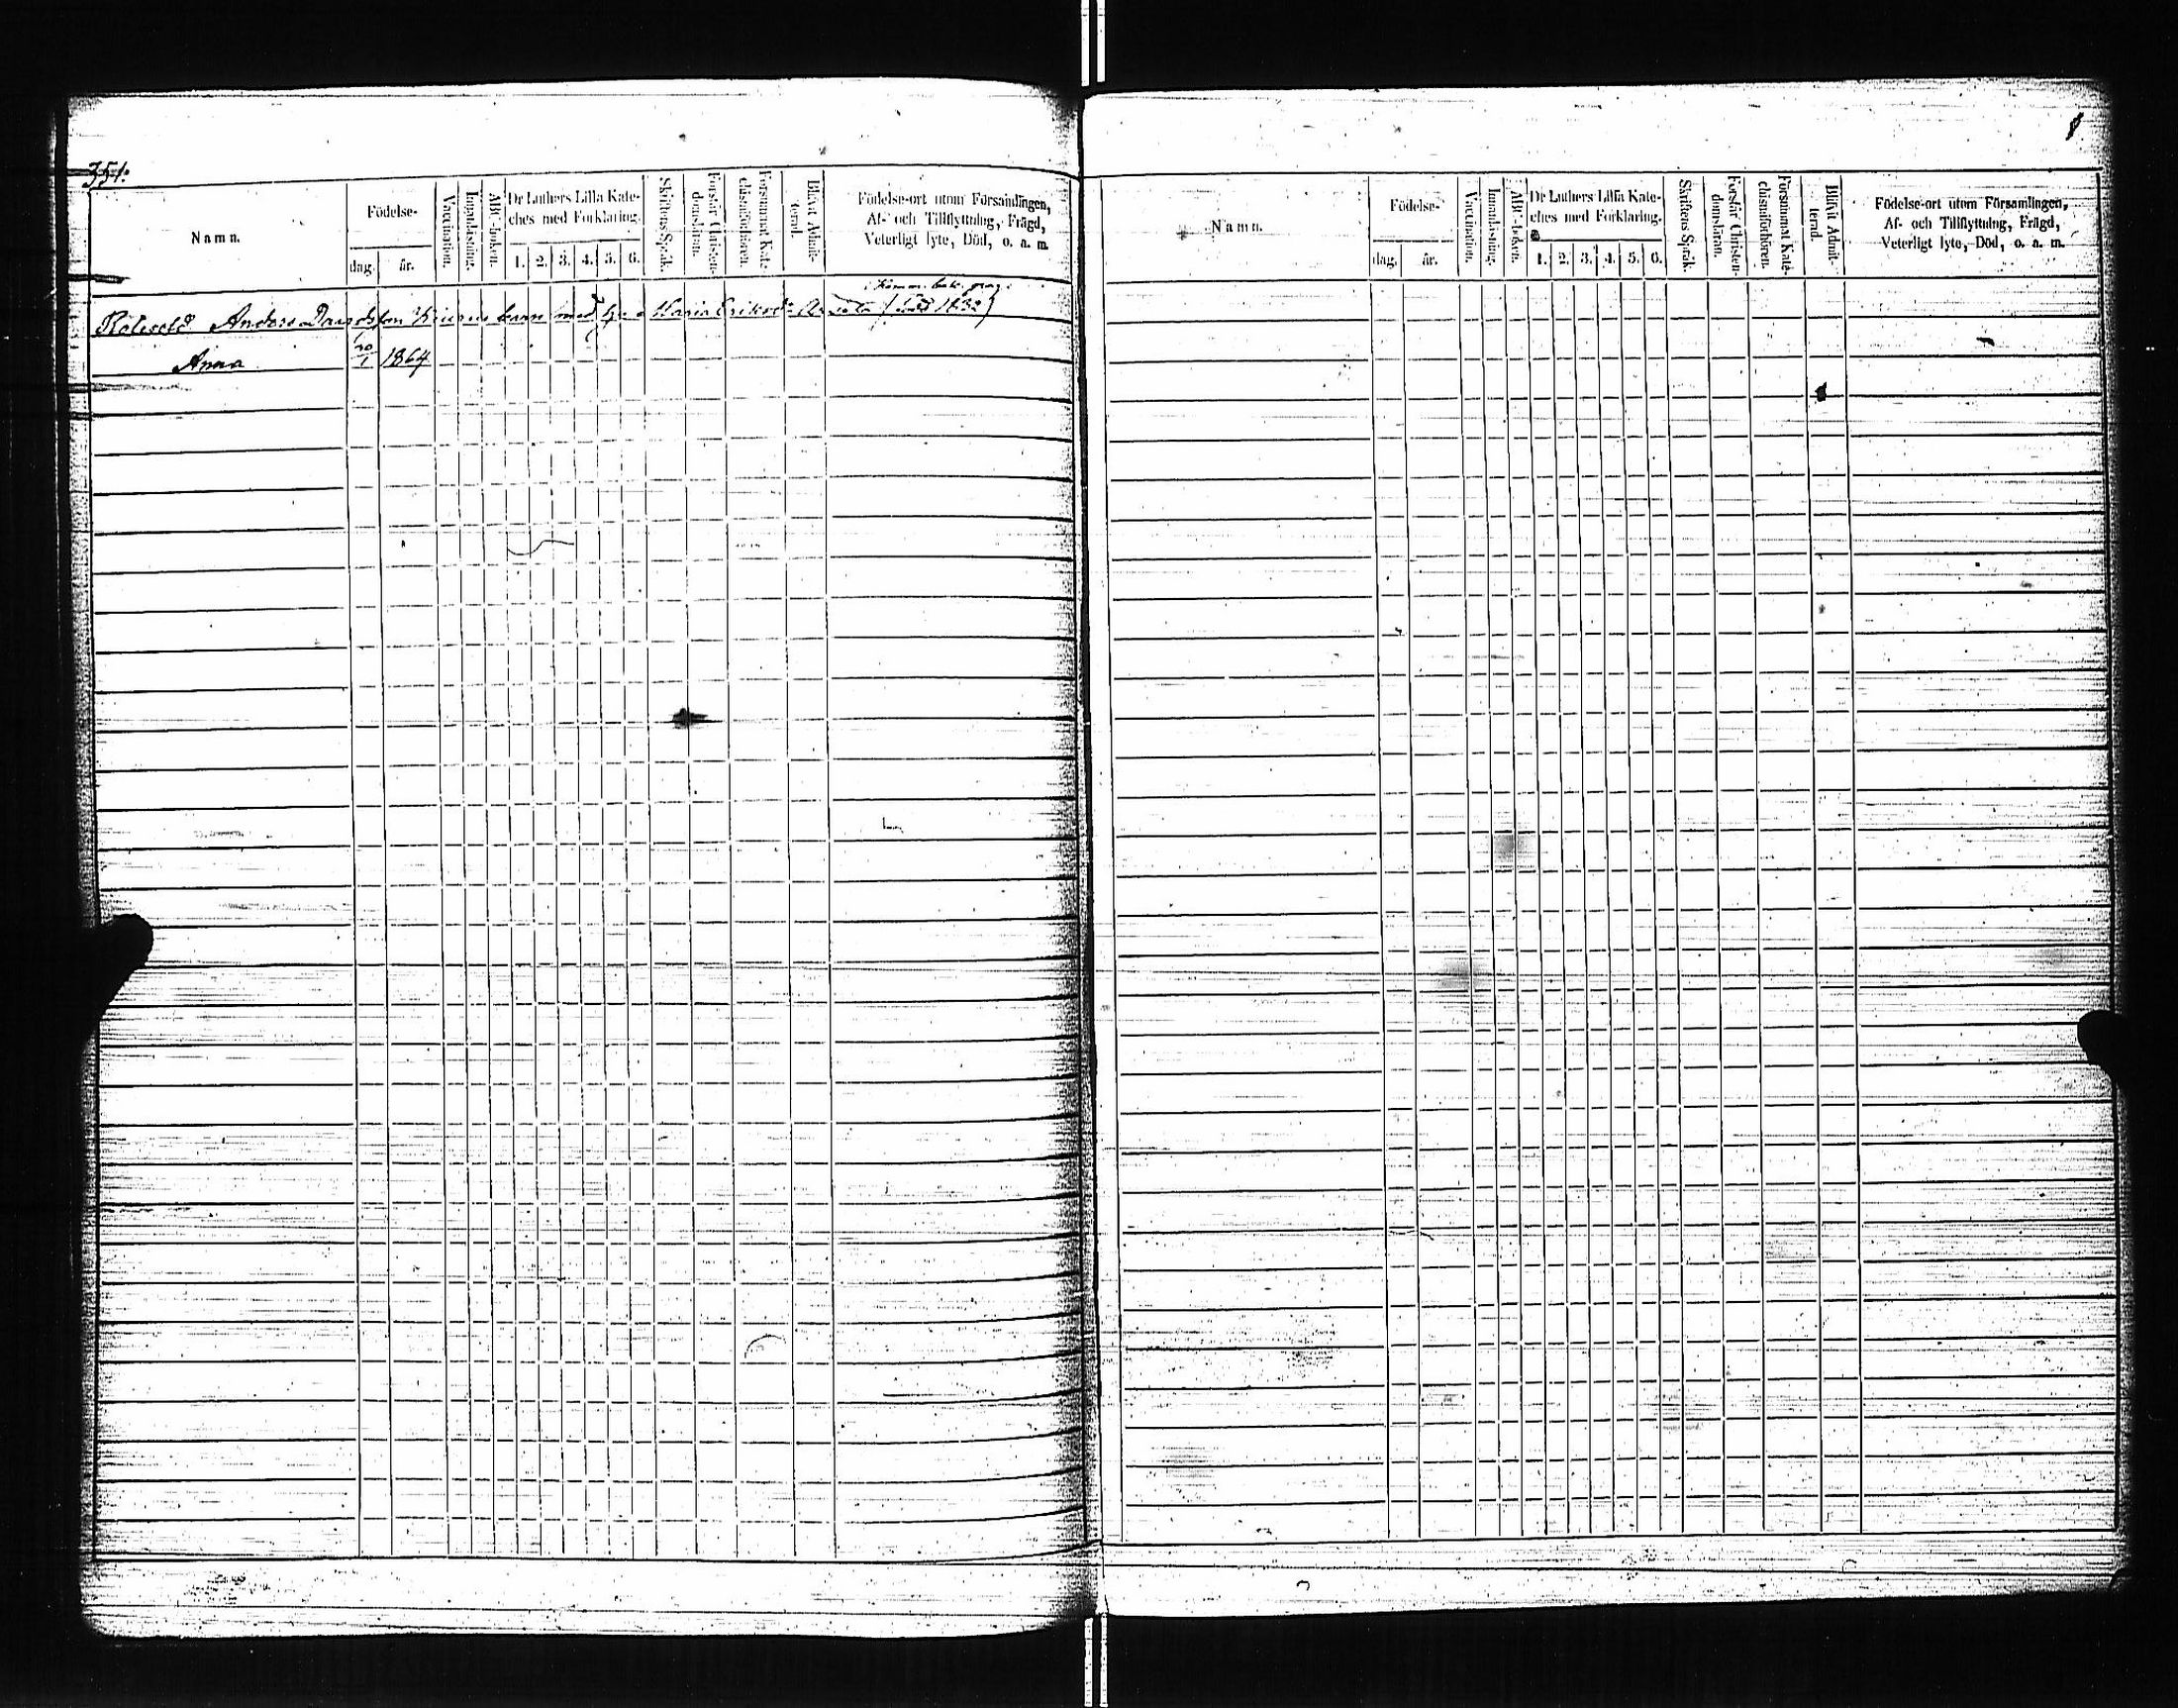 351.
Namn.
Födelse-
dag.
år.
Vaccination.
Innanläsning.
ABC-boken.
Dr Luthers Lilla Kate-
ches med Förklaring.
1. 2. 3. 4. 5. 6.
Skriftens Språk.
Förstår Christen-
domsläran.
Försummat Kate-
chismiförhören.
Blifvit Admit-
terad.
Födelse-ort utom Församlingen,
Af- och Tillflyttning, Frägd,
Veterligt lyte, Död, o. a. m.
Anders barn med Maria född 1832)
Anna 20/1 1864
Namn.
Födelse-
dag.
år.
Vaccination.
Innanläsning.
ABC-boken.
Dr Luthers Lilla Kate-
ches med Förklaring.
1. 2. 3. 4. 5. 6.
Skriftens Språk.
Förstår Christen-
domsläran.
Försummat Kate-
chismiförhören.
Blifvit Admit-
terad.
Födelse-ort utom Församlingen,
Af- och Tillflyttning, Frägd,
Veterligt lyte, Död, o. a. m.